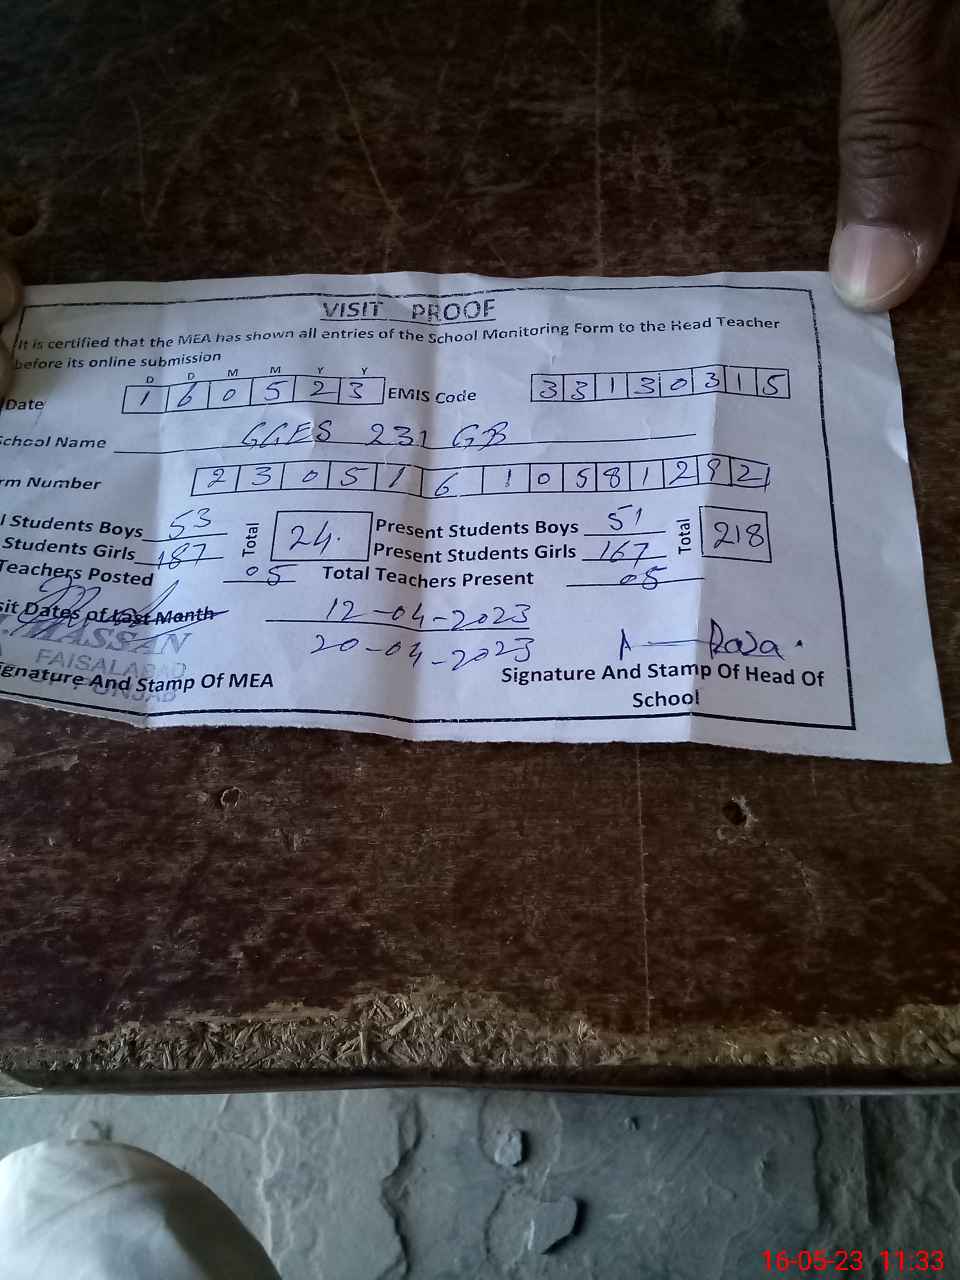 VISIT PROOF
It is certified that the MEA has shown all entries of the School Monitoring Form to the Head Teacher
before its online submission
D D M M Y Y
Date 1 6 0 5 2 3 EMIS Code 3 3 1 3 0 3 1 5
School Name GGES 231 GB
rm Number 2 3 0 5 1 6 1 0 5 8 1 2 9 2
l Students Boys 53 Total 24. Present Students Boys 51 Total 218
Students Girls 187 Present Students Girls 167
Teachers Posted 05 Total Teachers Present 05
sit Dates of Last Month 12-04-2023
20-04-2023
HASSAN
FAISALABAD
PUNJAB
A Raza.
ignature And Stamp Of MEA
Signature And Stamp Of Head Of
School
16-05-23 11:33